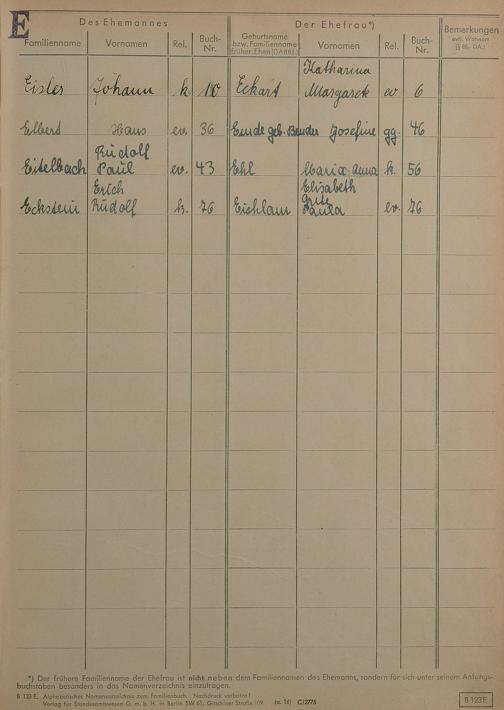 E
Des Ehemannes Der Ehefrau*)
Familienname Vornamen Rel. Buch-Nr. Geburtsname bzw. Familienname früher. Ehen (DA 88 f.) Vornamen Rel. Buch-Nr. Bemerkungen evtl. Wohnort (§ 86, DA.)
Katharina
Eisler Johann k 10 Eckart Margarete ev 6
Elbert Hans ev. 36 Emde geb. Bender Josefine gg. 46
Rudolf
Eitelbach Paul ev. 43 Ehl Maria Anna k. 56
Erich Elisabeth
Grete
Eckstein Rudolf k. 76 Eichlam Paula ev. 76
*) Der frühere Familienname der Ehefrau ist nicht neben dem Familiennamen des Ehemanns, sondern für sich unter seinem Anfangs-
buchstaben besonders in das Namenverzeichnis einzutragen.
B 123 E. Alphabetisches Namenverzeichnis zum Familienbuch. Nachdruck verboten!
Verlag für Standesamtswesen G. m. b. H. in Berlin SW 61, Gitschiner Straße 109 C/2775
B 123 E